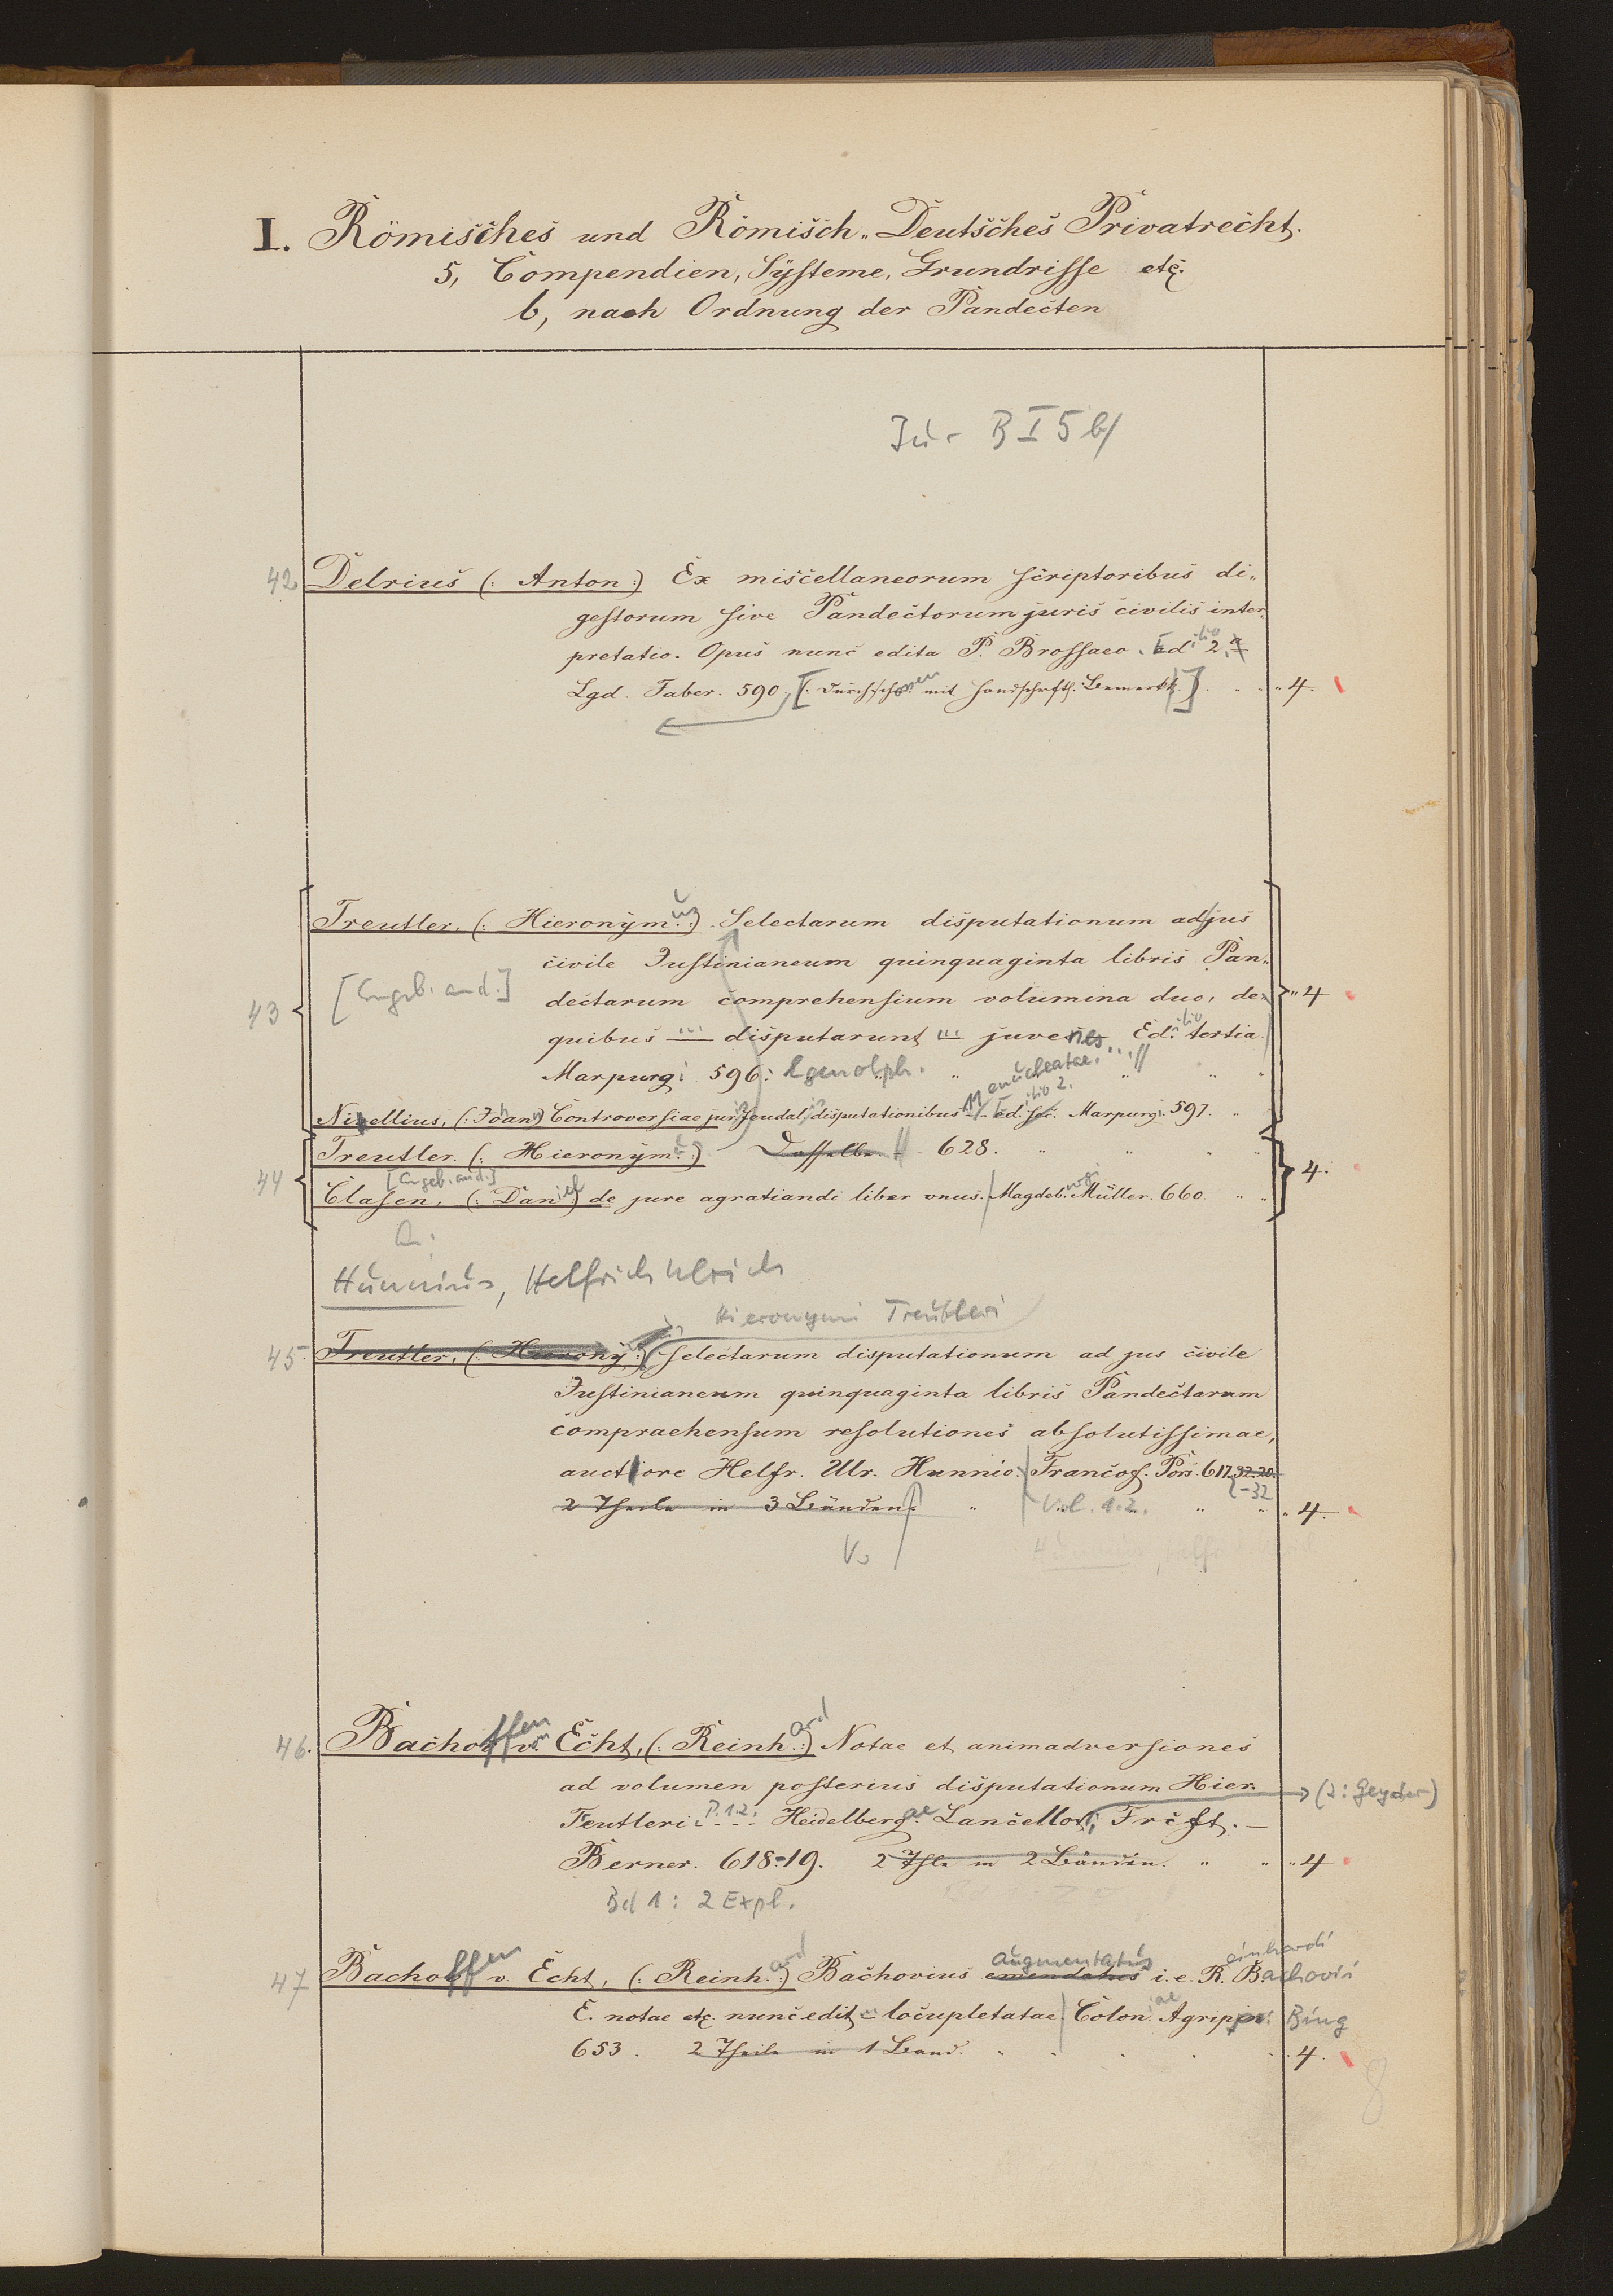 I. Römisches und Römisch„Deutsches Privatrecht.
5, Compendien, Systeme, Grundrisse etc.
b, nach Ordnung der Pandecten
Jur B I 5 b/
42 Delrius (: Anton:) Ex miscellaneorum scriptoribus di„
gestorum sive Pandectorum juris civilis inter„
pretatio. Opus nunc edita P. Brossaeo. Editio 2.a
Lgd. Faber. 590. [: Durchschossen mit handschriftl. Bemerkk.] „ 4.
Treutler, (: Hieronymus:) Selectarum disputationum ad jus
civile Justinianeum quinquaginta libris Pan„
43 [Angeb. and.] dectarum comprehensium volumina duo, de „ 4
quibus ... disputarunt ... juvenes Editio tertia
Marpurgi 596: Egenolph. „ enucleatae. ... //
Nisellius, (: Johann) Controversiae juris feudalis disputationibus 11 Editio 2. Marpurgi. 597. „
Treutler. (: Hieronymus:) Dasselbe. 628. „
44 [Angeb. and.] 4.
Clasen, (: Daniel) de jure agratiandi liber unus. Magdeb. Müller. 660. „
Hunnius, Helfrich Ulrich
Hieronymi Treutleri
45 Treutler, (: Hierony:) selectarum disputationum ad jus civile
Justinianeum quinquaginta libris Pandectarum
compraehensum resolutiones absolutissimae,
auctore Helfr. Ulr. Hunnio. Francof. Pors. 617.32.20. -32
2 Theile in 3 Bänden. „ Vol. 1.2. „ 4.
V.
46. Bachoffen v. Echt, (: Reinhard:) Notae et animadversiones
ad volumen posterius disputationum Hier.
Teutleri P. 1.2. Heidelbergae Lancellot, Frcft. — (2: Geyder)
Berner. 618-19. 2 Thle in 2 Bänden. „ 4
Bd 1: 2 Expl.
47 Bachoffen v. Echt, (: Reinhard:) Bachovius emendatus augmentatus i. e. Reinhardi Bachovii
E. notae etc. nunc edit ... locupletatae Coloniae Agrippi. Bing
653. 2 Theile in 1 Band. „ 4.
8